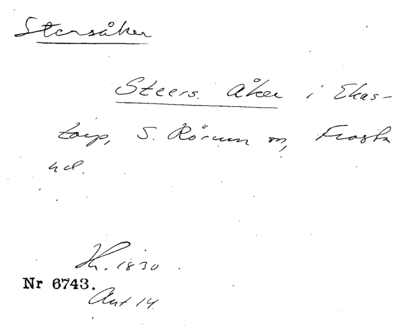 Stersåker
Steers. Åker i Ekas-
torp, S. Rörum sn, Frosta
hd.
H. 1830
Nr 6743.
Ant. 14.